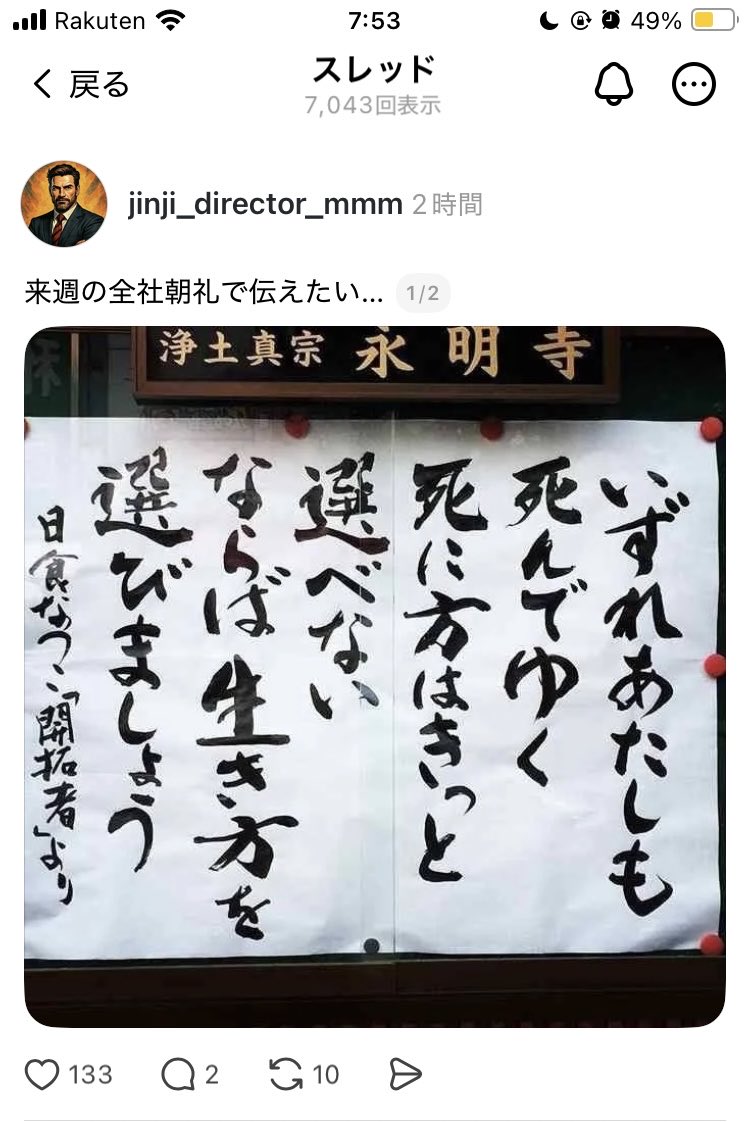 Rakuten
7:53
49%
戻る
スレッド
7,043回表示
jinji_director_mmm 2時間
来週の全社朝礼で伝えたい... 1/2
浄土真宗 永明寺
いずれあたしも
死んでゆく
死に方はきっと
選べない
ならば生き方を
選びましょう
日食なつこ「開拓者」より
133
2
10